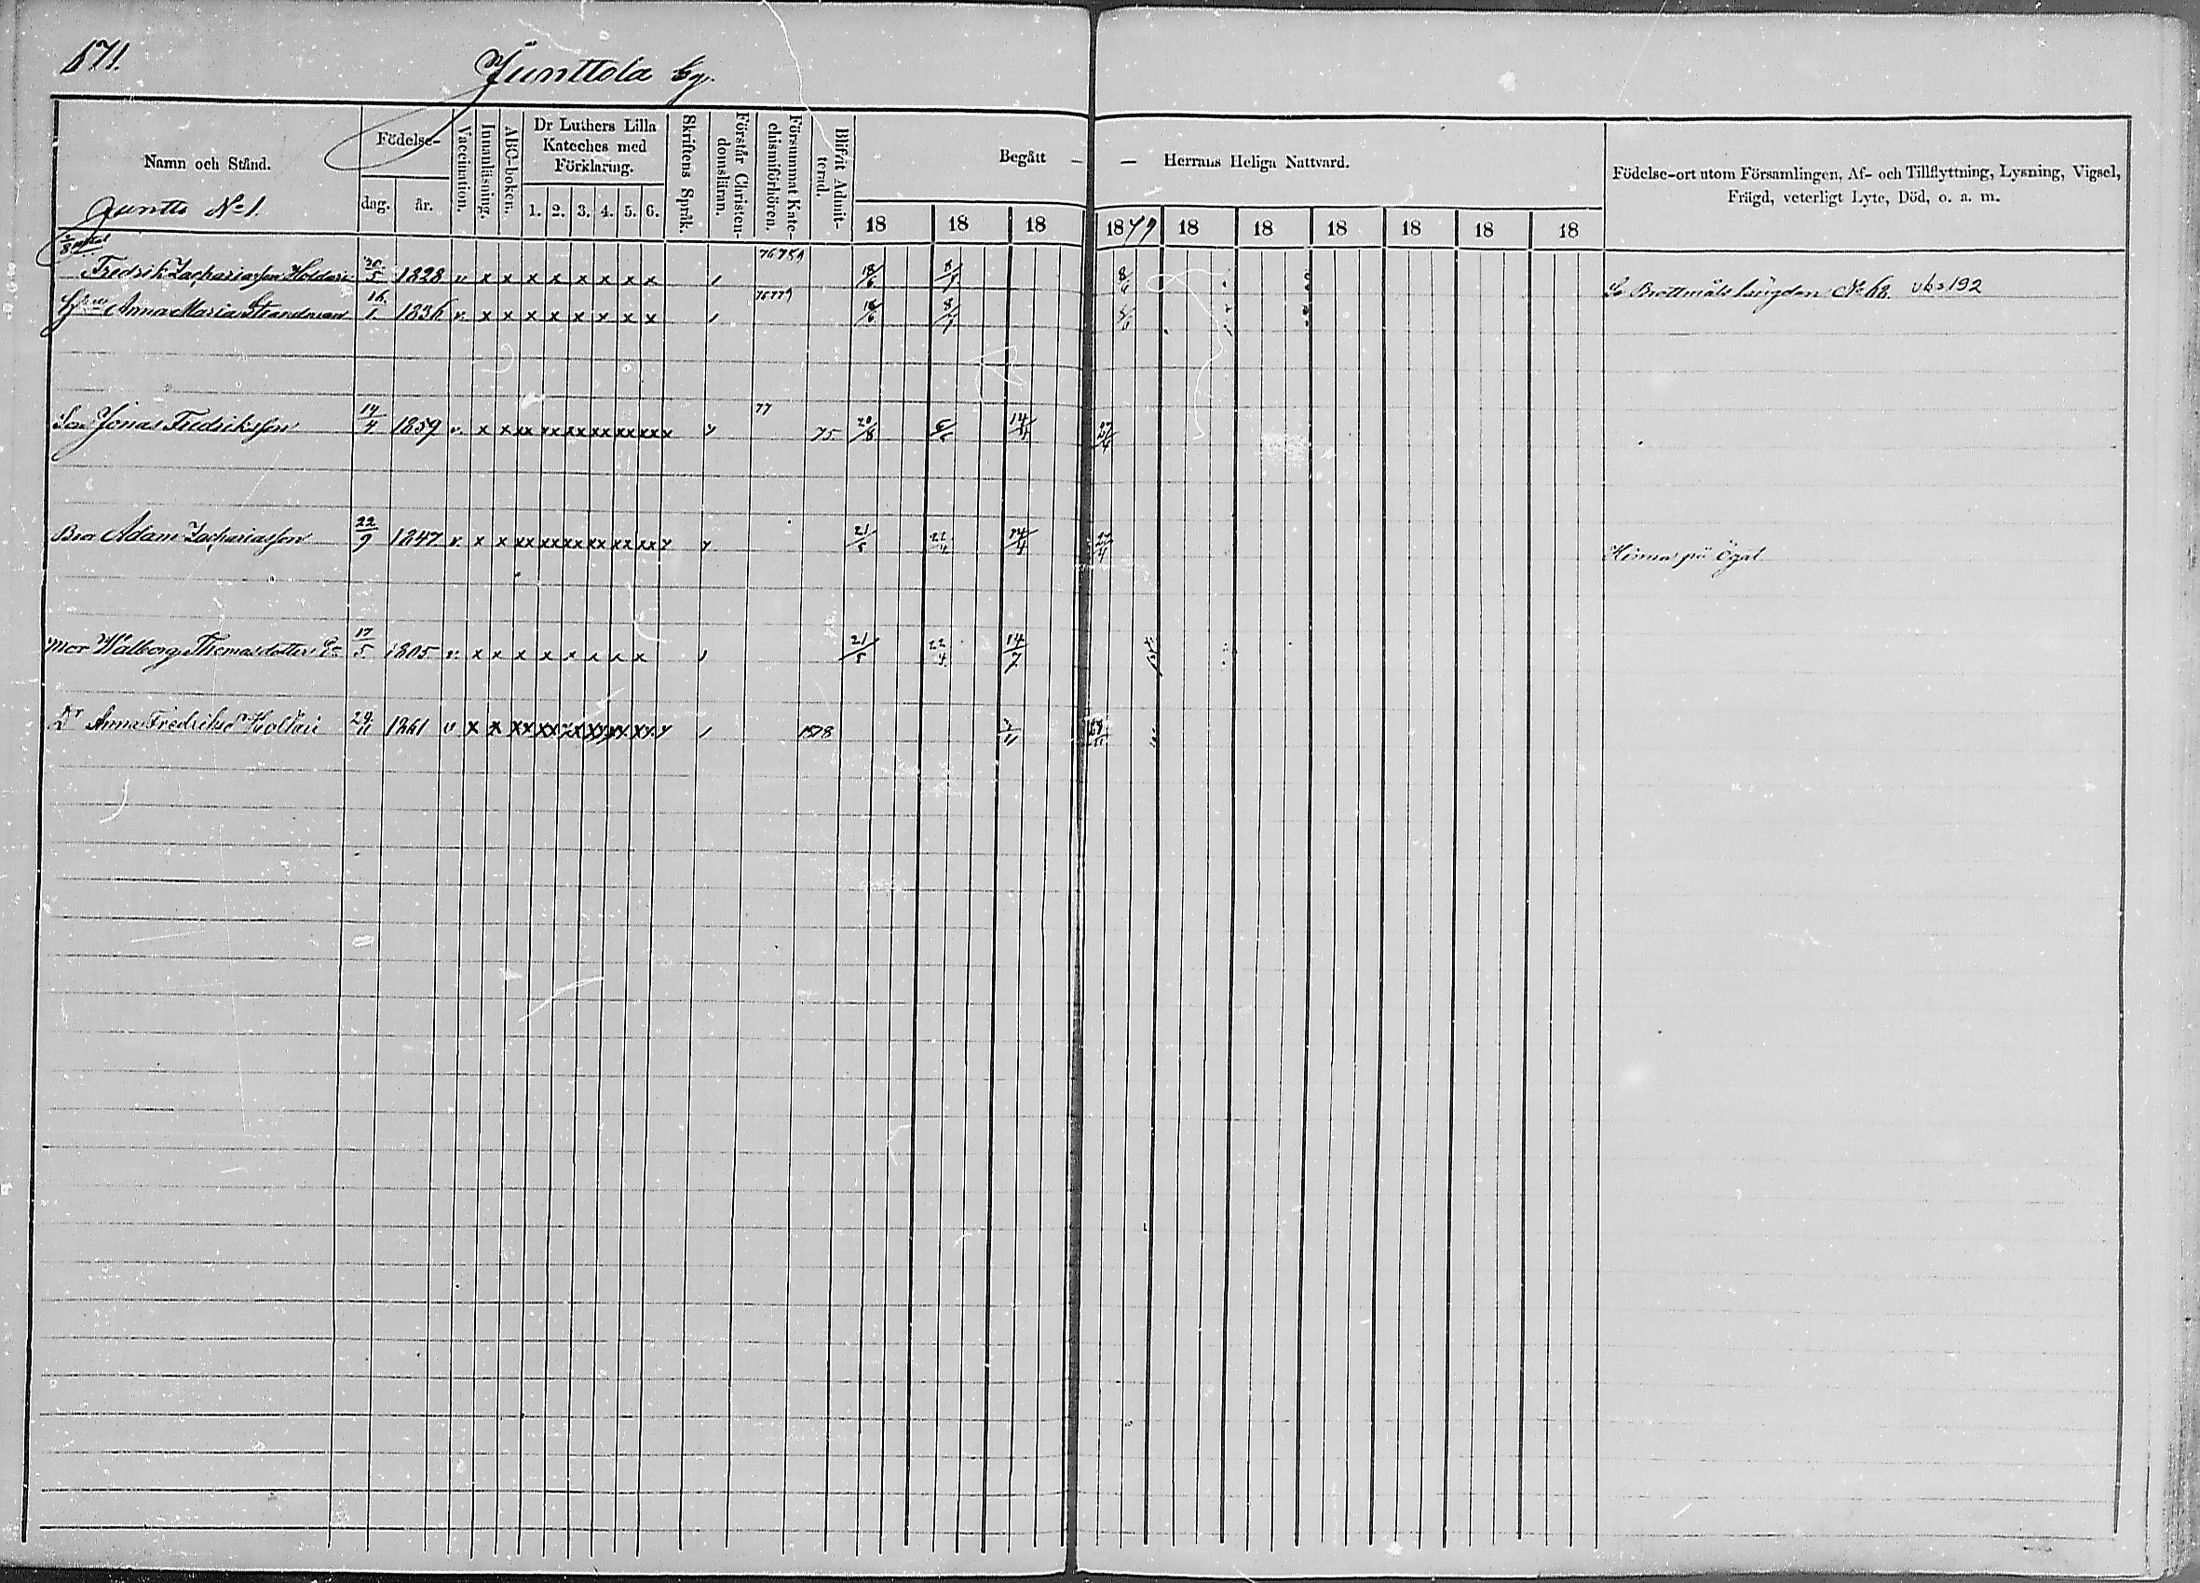 171.
Junttola by.
Namn och Stånd.
Födelse-
dag. år.
Vaccination.
Innanläsning.
ABC-boken.
Dr Luthers Lilla
Kateches med
Förklaring.
1. 2. 3. 4. 5. 6.
Skriftens Språk.
Förstår Christen-
domsläran.
Försummat Kate-
chismiförhören.
Blifvit Admit-
terad.
Begått — — Herrans Heliga Nattvard.
18 18 18 1879 18 18 18 18 18 18
Födelse-ort utom Församlingen, Af- och Tillflyttning, Lysning, Vigsel,
Frägd, veterligt Lyte, Död, o. a. m.
Juntto No 1.
Fredrik Zachariasson Holdari 30/5 1828 v x x x x x x x x 18/6 8/7 8/6 Se Brottmåls längden No 68. vks 192
Hru Anna Maria Strandman 16/1 1836 v. x x x x x x x x 18/6 8/7
Son Jonas Fredriksson 14/4 1859 v. x x xx xx xx xx xx xx x 77 75 20/8
Bror Adam Zachariasson 22/9 1847 v. x x xx xx xx xx xx xx 21/5 22/4 14/4 27/4 Hinna på ögat
Mor Walborg Thomasdotter 17/5 1805 v. x x x x x x x x 21/5 22/4 14/7
Dr Anna Fredriksd Holtari 29/11 1861 v x x xx xx xx xx xx xx 1878